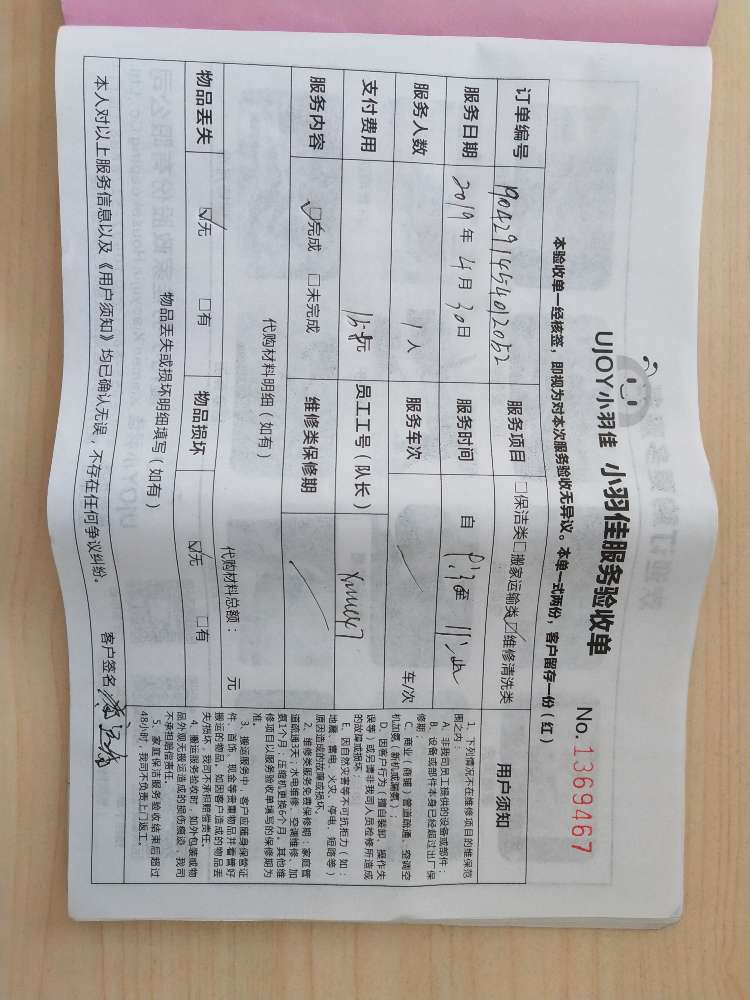 UJOY小羽佳 小羽佳服务验收单
No.1369467
本验收单一经核签，即视为对本次服务验收无异议。本单一式两份，客户留存一份（红）
订单编号 服务项目 □保洁类□搬家运输类☑维修清洗类
服务日期 2019年4月30日 服务时间 自 至
服务人数 1人 服务车次 车/次
支付费用 元 员工工号（队长）
服务内容 ☑完成 □未完成 维修类保修期
代购材料明细（如有） 代购材料总额： 元
物品丢失 ☑无 □有 物品损坏 ☑无 □有
物品丢失或损坏明细填写（如有）
本人对以上服务信息以及《用户须知》均已确认无误，不存在任何争议纠纷。
客户签名
用户须知
1、下列情况不在维修项目的维保范
围之内：
A、非我司员工提供的设备或部件；
B、设备或部件本身已经超过出厂保
修期；
C、商业（商铺）管道疏通、空调空
机加氨（新机或漏氨）；
D、因客户行为（擅自装卸、操作失
误等）或另请非我司人员检修所造成
的故障或损坏；
E、因自然灾害等不可抗拒力（如：
地震、雷电、火灾、停电、短路等）
原因造成的故障或损坏。
2、维修类服务免费保修期：家庭管
道疏通3天；水电维修、空调维修、加
氨1个月；压缩机更换6个月，其他维
修项目以服务验收单填写的保修期为
准。
3、搬业服务中，客户应随身保管证
件、首饰、现金等贵重物品并看管好
搬运的物品，如因客户造成的物品丢
失/损坏，我司不承担赔偿责任。
4、搬运服务验收时，如外包装或物
品外观无搬运造成的损伤痕迹，我司
不承担赔偿责任。
5、家庭保洁服务验收结束后超过
48小时，我司不负责上门返工。